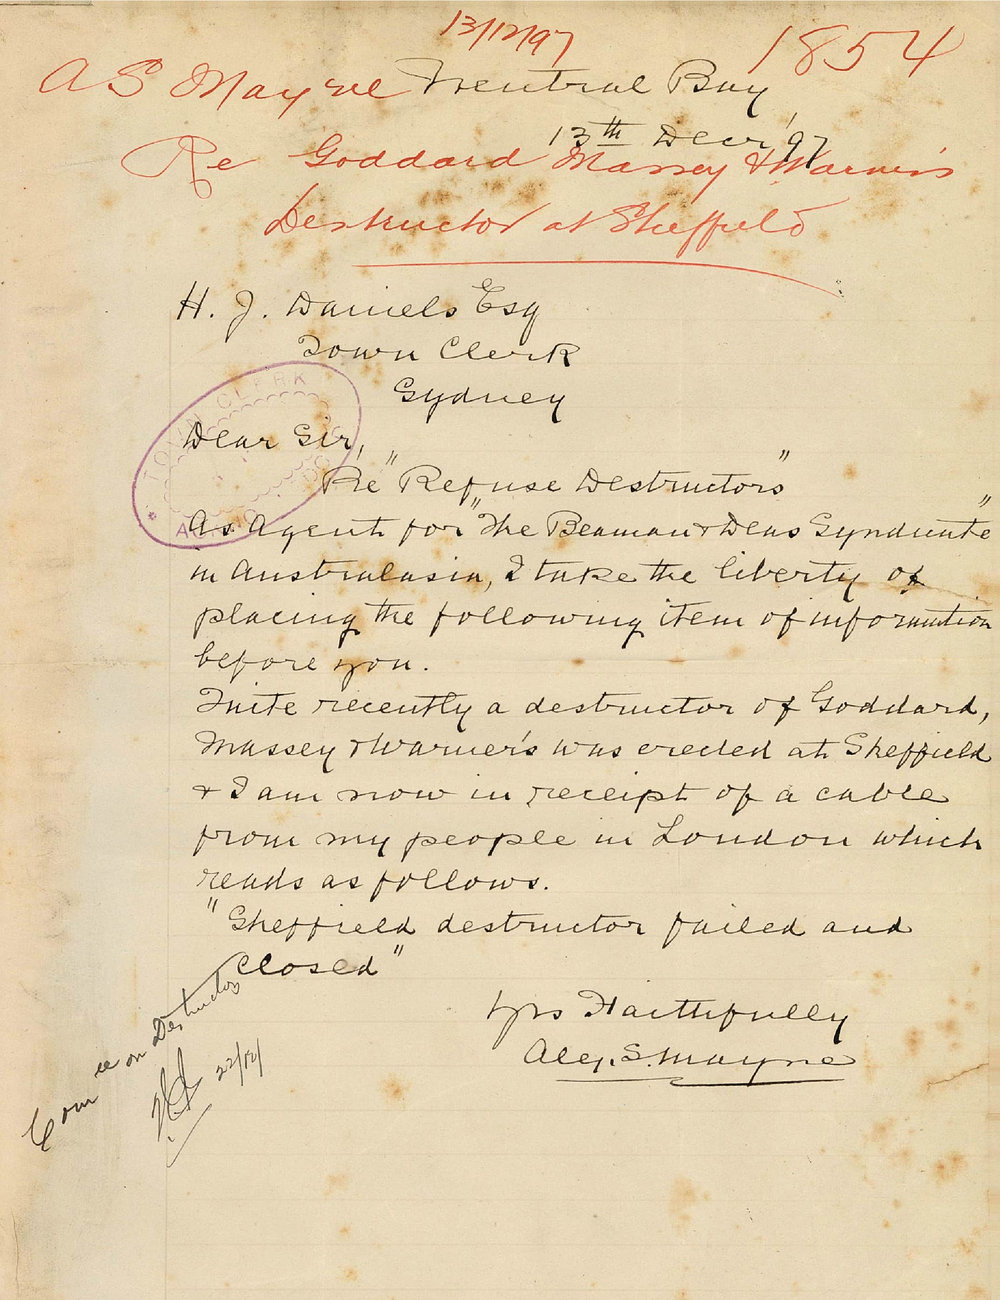 13/12/97
1854
A S Mayne
Neutral Bay,
13th Decr '97
Re Goddard Massey & Warner's
Destructor at Sheffield
H. J. Daniels Esq
Town Clerk
Sydney
TOWN CLERK
Dear Sir,
Re "Refuse Destructors"
As Agent for "The Beaman & Deas Syndicate"
in Australasia, I take the liberty of
placing the following item of information
before you.
Quite recently a destructor of Goddard,
Massey & Warner's was erected at Sheffield
& I am now in receipt of a cable
from my people in London which
reads as follows.
"Sheffield destructor failed and
closed"
Yrs Faithfully
Alex. S. Mayne
Comee on Destructor
22/12/